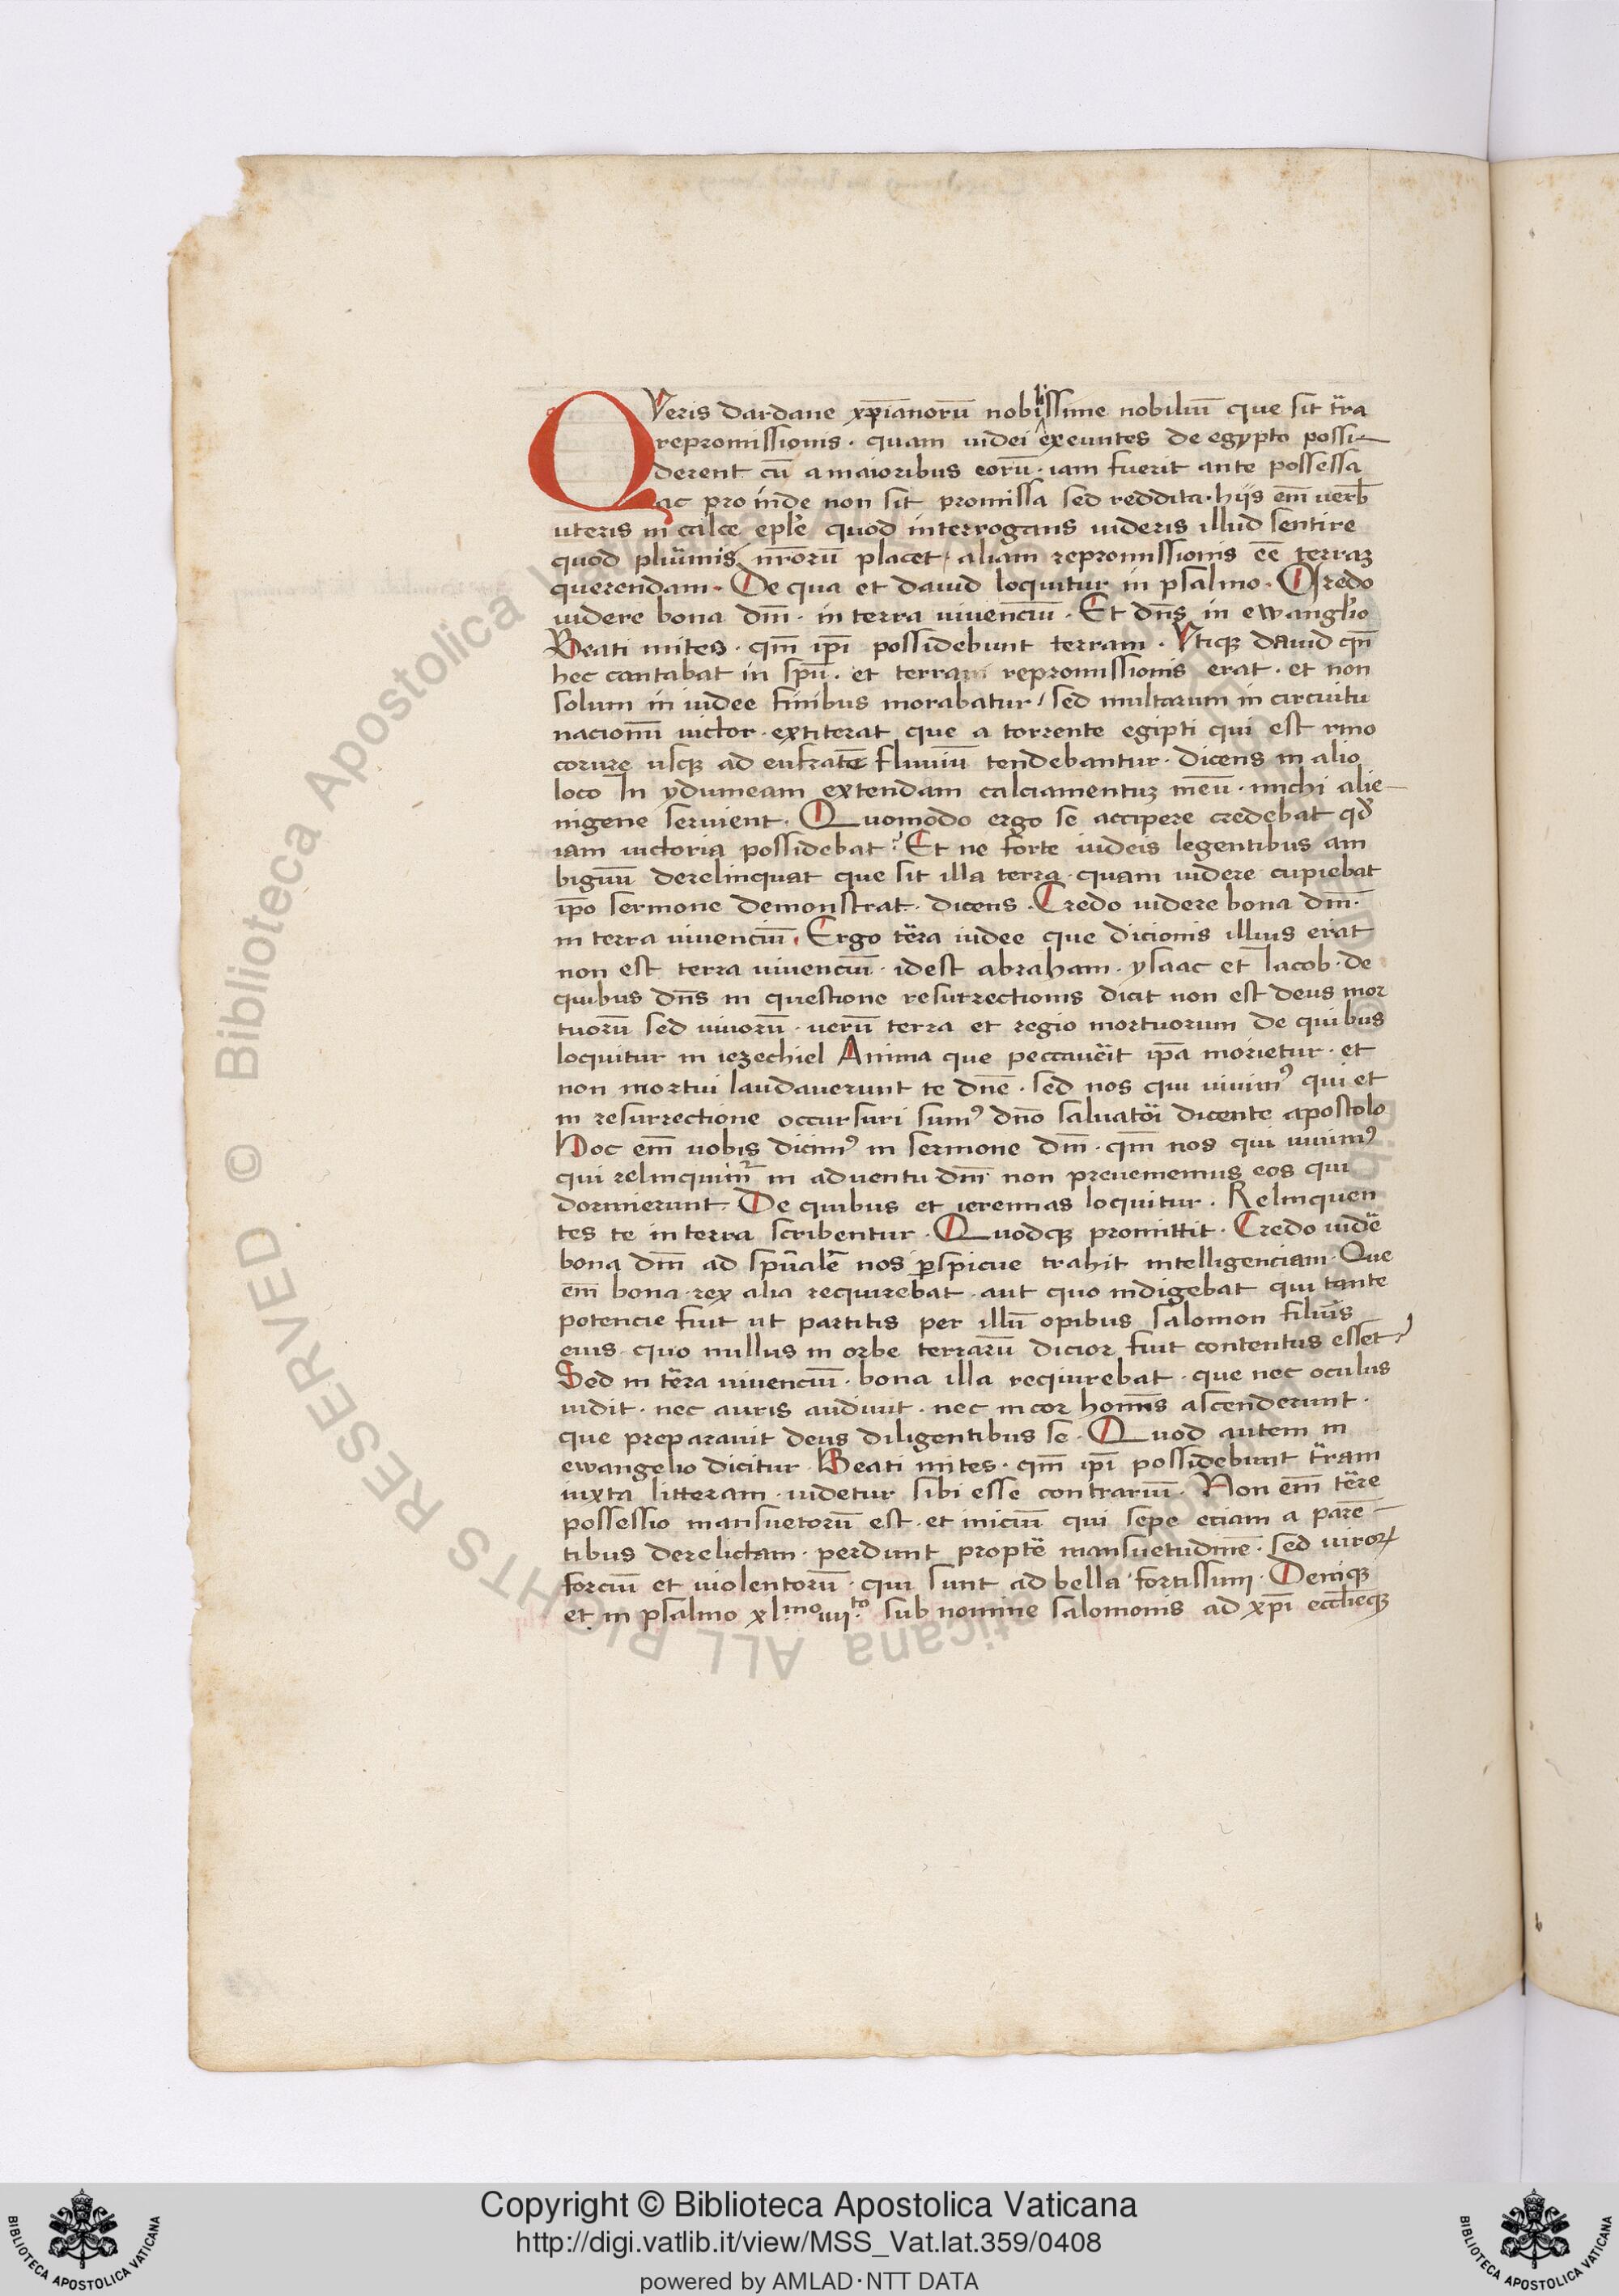 QVeris dardane xp̄ianorū nobilissime nobiliū que sit t̄ra
repromissionis · quam iudei exeuntes de egypto possi-
derent cū a maioribus eorū · iam fuerit ante possessa
ac pro inde non sit promissa sed reddita · hijs em̄ uerb̄
uteris in calce ep̄le quod interrogans uideris illud sentire
quod plurimis nr̄orū placet / aliam repromissionis ēe terraꝫ
querendam · De qua et dauid loquitur in psalmo · Credo
uidere bona dm̄ · in terra viuenciū · Et dn̄s in ewanglio
Beati mites · qm̄ ip̄i possidebunt terram · Vtiqꝫ dauid qn̄
hec cantabat in sp̄u · et terram repromissionis erat · et non
solum in iudee finibus morabatur / sed multarum in circuitu
nacionū uictor · extiterat que a torrente egipti qui est rino
corure usqꝫ ad eufratē fluuiū tendebantur · dicens in alio
loco In ydumeam extendam calciamentuꝫ meū · michi alie-
nigene seruient · Quomodo ergo se accipere credebat qd̄
iam uictoria possidebat ? Et ne forte iudeis legentibus am
biguū derelinquat que sit illa terra · quam uidere cupiebat
ip̄o sermone demonstrat · dicens · Credo uidere bona dm̄ ·
in terra viuenciū · Ergo t̄ra iudee que dicionis illius erat
non est terra viuenciū · idest abraham · ysaac et Iacob · de
quibus dn̄s in questione resurrectionis dicit non est deus mor
tuorū sed viuorū · uerū terra et regio mortuorum de quibus
loquitur in iezechiel Anima que peccau̾it ip̄a morietur · et
non mortui laudauerunt te dn̄e · sed nos qui viuimꝰ qui et
in resurrectione occursuri sumꝰ dn̄o saluator̾i dicente apostolo
Hoc em̄ uobis dicimꝰ in sermone dm̄ · qm̄ nos qui viuimꝰ
qui relinquimr̄ in aduentu dm̄ non preueniemus eos qui
dormierunt · De quibus et ieremias loquitur · Relinquen
tes te in terra scribentur · Quodqꝫ promittit · Credo uid̾e
bona dm̄ ad sp̄ualē nos ꝑspicue trahit intelligenciam · Que
em̄ bona · rex alia requirebat · aut quo indigebat qui tante
potencie fuit ut partitis per illū opibus salomon filius
eius · quo nullus in orbe terrarū dicior fuit contentus esset ?
Sed in t̄ra viuenciū · bona illa requirebat · que nec oculus
uidit · nec auris audiuit · nec in cor hominis ascenderunt ·
que preparauit deus diligentibus se · Quod autem in
ewangelio dicitur · Beati mites · qm̄ ip̄i possidebunt t̄ram
iuxta litteram · uidetur sibi esse contrariū · Non em̄ t̄re
possessio mansuetorū est · et miciū qui sepe eciam a parē-
tibus derelictam · perdunt propt̾ mansuetudinē · sed uiroꝝ
forciū et uiolentorū · qui sunt ad bella fortissimi · Deniqꝫ
et in psalmo xl.mo iiii.to sub nomine salomonis ad xp̄i ecclīeqꝫ
Copyright © Biblioteca Apostolica Vaticana
http://digi.vatlib.it/view/MSS_Vat.lat.359/0408
powered by AMLAD·NTT DATA
BIBLIOTECA APOSTOLICA VATICANA
BIBLIOTECA APOSTOLICA VATICANA